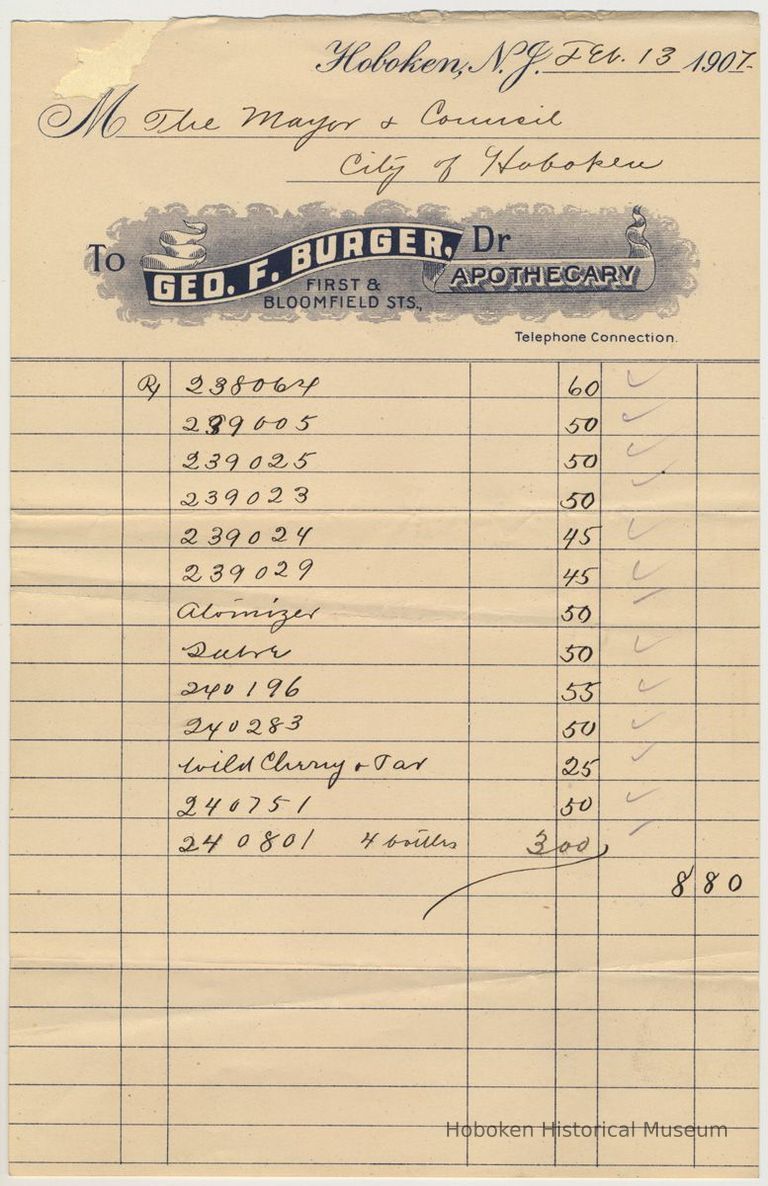 Hoboken, N. J. Feb. 13 1907.
M The Mayor & Council
City of Hoboken
To GEO. F. BURGER, Dr
APOTHECARY
FIRST &
BLOOMFIELD STS.,
Telephone Connection.
Rx 238064 60 ✓
239005 50 ✓
239025 50 ✓
239023 50 ✓
239024 45 ✓
239029 45 ✓
Atomizer 50
50 ✓
240196 55 ✓
240283 50 ✓
Wild Cherry & Tar 25 ✓
240751 50 ✓
240801 4 bottles 3 00
8 80
Hoboken Historical Museum